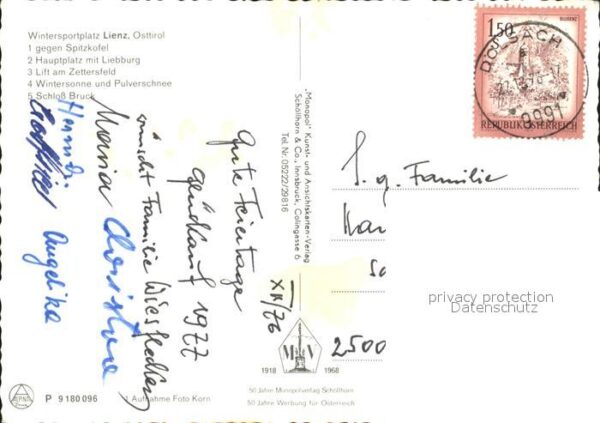 Wintersportplatz Lienz, Osttirol
1 gegen Spitzkofel
2 Hauptplatz mit Liebburg
3 Lift am Zettersfeld
4 Wintersonne und Pulverschnee
5 Schloß Bruck
1.50
RUST
REPUBLIK ÖSTERREICH
DÖLSACH
9991
„Monopol" Kunst- und Ansichtskarten-Verlag
Schöllhorn & Co., Innsbruck, Colingasse 6
Tel. Nr. 05222/29816
XII/76
Gute Feiertage
1977
wünscht Familie
Maria Christine
Angelika
S. g. Familie
2500
privacy protection
Datenschutz
1918 1968
50 Jahre Monopolverlag Schöllhorn
50 Jahre Werbung für Österreich
P 9180096
Aufnahme Foto Korn